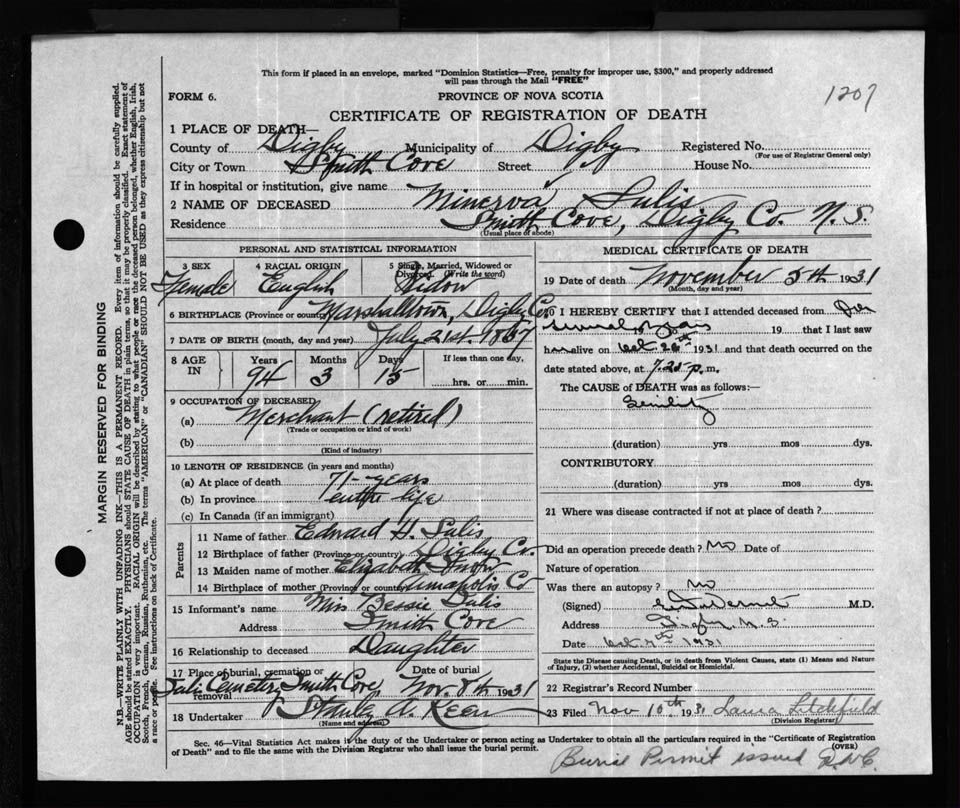 This form if placed in an envelope, marked "Dominion Statistics—Free, penalty for improper use, $300," and properly addressed
will pass through the Mail "FREE"
FORM 6.
PROVINCE OF NOVA SCOTIA
1207
CERTIFICATE OF REGISTRATION OF DEATH
1 PLACE OF DEATH—
County of Digby Municipality of Digby Registered No.
(For use of Registrar General only)
City or Town Smith Cove Street House No.
If in hospital or institution, give name
2 NAME OF DECEASED Minerva Sulis
Residence Smith Cove, Digby Co. N. S.
(Usual place of abode)
PERSONAL AND STATISTICAL INFORMATION
3 SEX 4 RACIAL ORIGIN 5 Single, Married, Widowed or Divorced. (Write the word)
Female English Widow
6 BIRTHPLACE (Province or country) Marshalltown, Digby Co.
7 DATE OF BIRTH (month, day and year) July 21st. 1837
8 AGE IN Years Months Days If less than one day,
94 3 15 hrs. or min.
9 OCCUPATION OF DECEASED
(a) Merchant (retired)
(Trade or occupation or kind of work)
(b)
(Kind of industry)
10 LENGTH OF RESIDENCE (in years and months)
(a) At place of death 71-years
(b) In province entire life
(c) In Canada (if an immigrant)
Parents
11 Name of father Edward H. Sulis
12 Birthplace of father (Province or country) Digby Co.
13 Maiden name of mother Elizabeth Snow
14 Birthplace of mother (Province or country) Annapolis Co
15 Informant's name Miss Bessie Sulis
Address Smith Cove
16 Relationship to deceased Daughter
17 Place of burial, cremation or removal Date of burial
Sulis Cemetery Smith Cove Nov. 8th 1931
18 Undertaker Stanley A. Keen
(Name and address)
MEDICAL CERTIFICATE OF DEATH
19 Date of death November 5th 1931
(Month, day and year)
20 I HEREBY CERTIFY that I attended deceased from for
several years 19 that I last saw
h alive on Oct 26th 1931 and that death occurred on the
date stated above, at 7.20 p.m.
The CAUSE of DEATH was as follows:—
Senility
(duration) yrs mos dys.
CONTRIBUTORY
(duration) yrs mos dys.
21 Where was disease contracted if not at place of death?
Did an operation precede death? No Date of
Nature of operation
Was there an autopsy? No
(Signed) M.D.
Address Digby N.S.
Date 1931
State the Disease causing Death, or in death from Violent Causes, state (1) Means and Nature
of Injury, (2) whether Accidental, Suicidal or Homicidal.
22 Registrar's Record Number
23 Filed Nov 10th 1931 Laura Litchfield
(Division Registrar)
Sec. 46—Vital Statistics Act makes it the duty of the Undertaker or person acting as Undertaker to obtain all the particulars required in the "Certificate of Registration
of Death" and to file the same with the Division Registrar who shall issue the burial permit.
(OVER)
Burial Permit issued
MARGIN RESERVED FOR BINDING
N.B.—WRITE PLAINLY WITH UNFADING INK—THIS IS A PERMANENT RECORD. Every item of information should be carefully supplied.
AGE should be stated EXACTLY. PHYSICIANS should STATE CAUSE OF DEATH in plain terms, so that it may be properly classified. Exact statement of
OCCUPATION is very important. RACIAL ORIGIN will be described by stating to what people or race the deceased person belonged, whether English, Irish,
Scotch, French, German, Russian, Ruthenian, etc. The terms "AMERICAN" or "CANADIAN" SHOULD NOT BE USED as they express citizenship but not
a race or people. See instructions on back of Certificate.